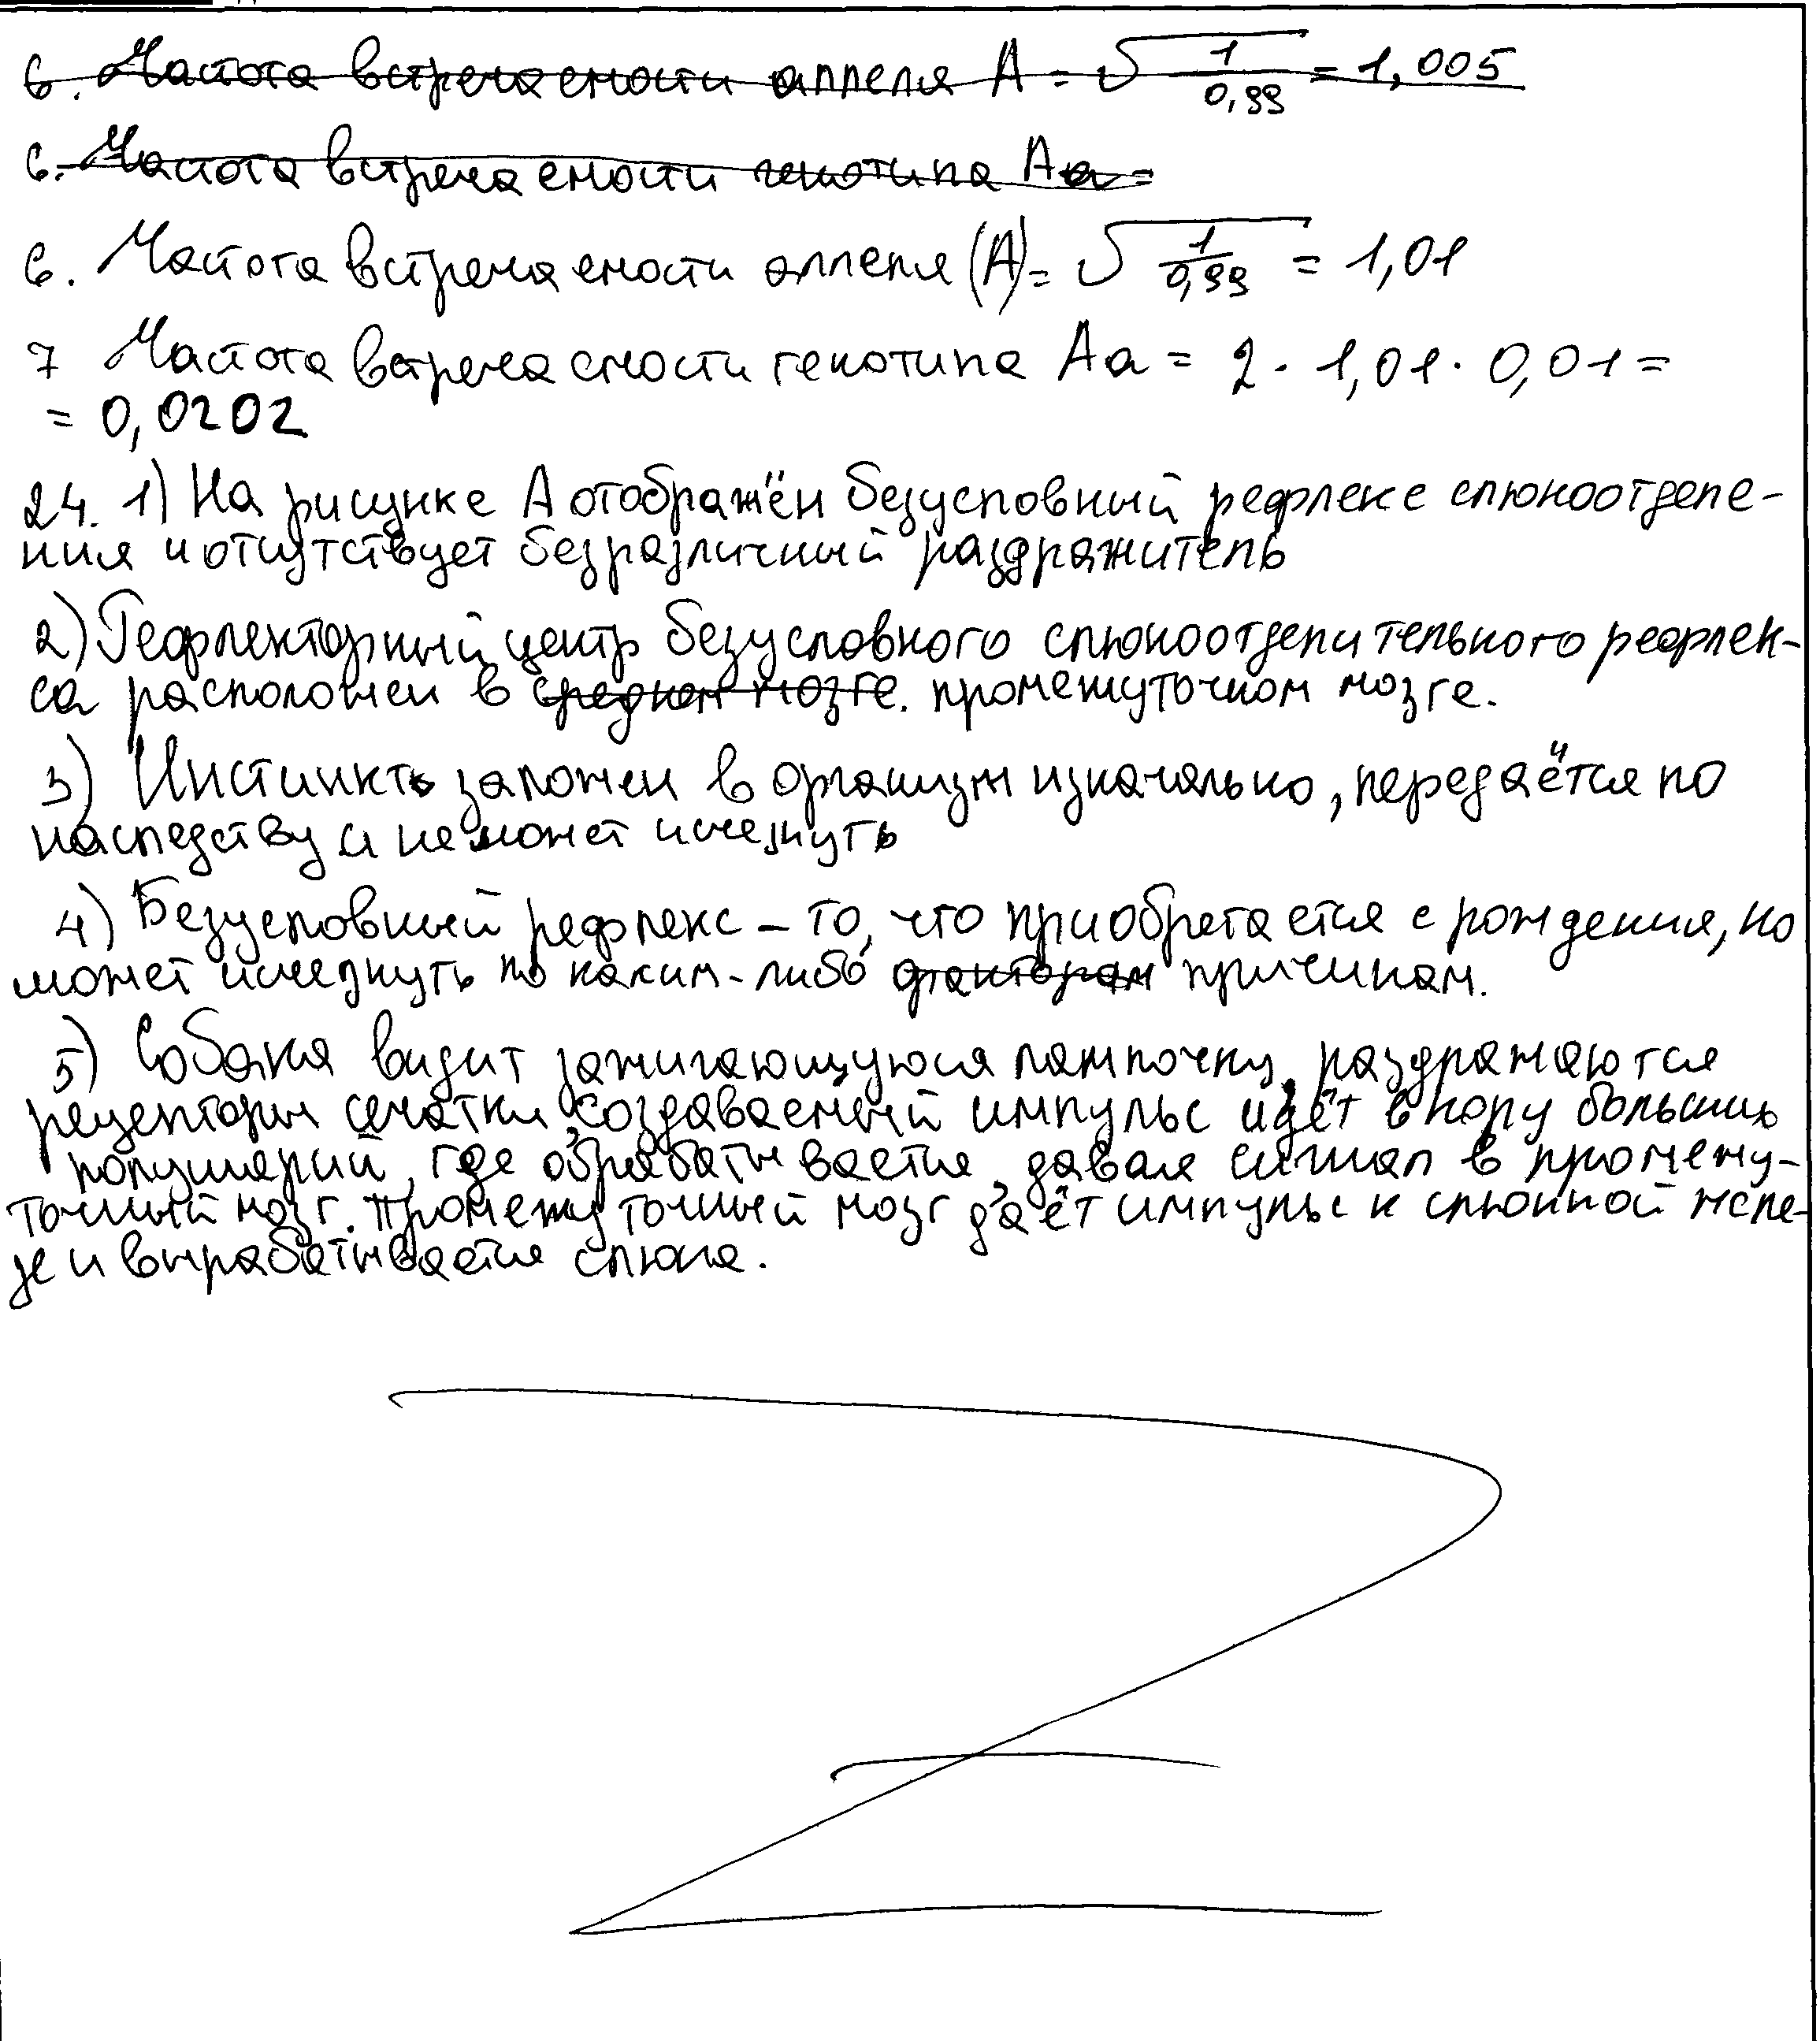 6. Частота встречаемости аллеля A = √1/0,99 = 1,005
6. Частота встречаемости генотипа Aa =
6. Частота встречаемости аллеля (A) = √1/0,99 = 1,01
7 Частота встречаемости генотипа Aa = 2 · 1,01 · 0,01 =
= 0,0202
24. 1) На рисунке А отображён безусловный рефлекс слюноотделе-
ния и отсутствует безразличный раздражитель
2) Рефлекторный центр безусловного слюноотделительного рефлек-
са расположен в среднем мозге. промежуточном мозге.
3) Инстинкт заложен в организм изначально, передаётся по
наследству и не может исчезнуть
4) Безусловный рефлекс – то, что приобретается с рождения, но
может исчезнуть по каким-либо факторам причинам.
5) Собака видит зажигающуюся лампочку, раздражаются
рецепторы сечатки, создаваемый импульс идёт в кору больших
полушарий, где обрабатывается, давая сигнал в промежу-
точный мозг. Промежуточный мозг даёт импульс к слюнной желе-
зе и вырабатывается слюна.